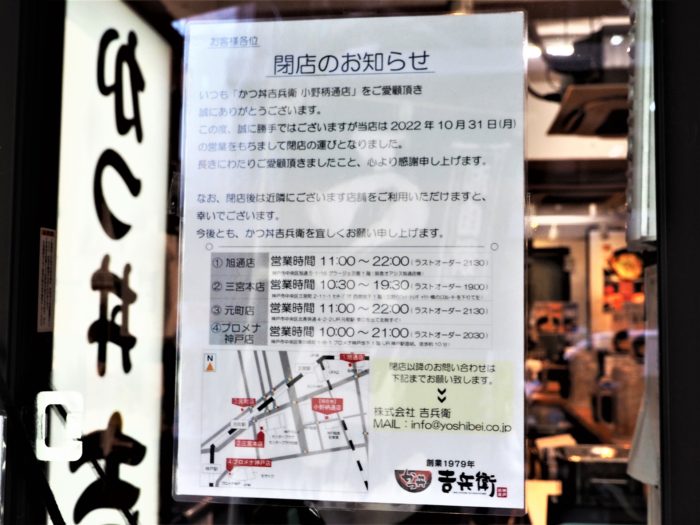 かつ丼
お客様各位
閉店のお知らせ
いつも「かつ丼吉兵衛 小野柄通店」をご愛顧頂き
誠にありがとうございます。
この度、誠に勝手ではございますが当店は 2022 年 10 月 31 日(月)
の営業をもちまして閉店の運びとなりました。
長きにわたりご愛顧頂きましたこと、心より感謝申し上げます。
なお、閉店後は近隣にございます店舗をご利用いただけますと、
幸いでございます。
今後とも、かつ丼吉兵衛を宜しくお願い申し上げます。
① 旭通店 営業時間 11:00~22:00(ラストオーダー 21:30)
② 三宮本店 営業時間 10:30~19:30(ラストオーダー 19:00)
③ 元町店 営業時間 11:00~22:00(ラストオーダー 21:30)
④プロメナ神戸店 営業時間 10:00~21:00(ラストオーダー 20:30)
N
1.旭通店
3.元町店
小野柄通店
2.三宮本店
4.プロメナ神戸店
閉店以降のお問い合わせは
下記までお願い致します。
株式会社 吉兵衛
MAIL:info@yoshibei.co.jp
創業1979年
吉兵衛